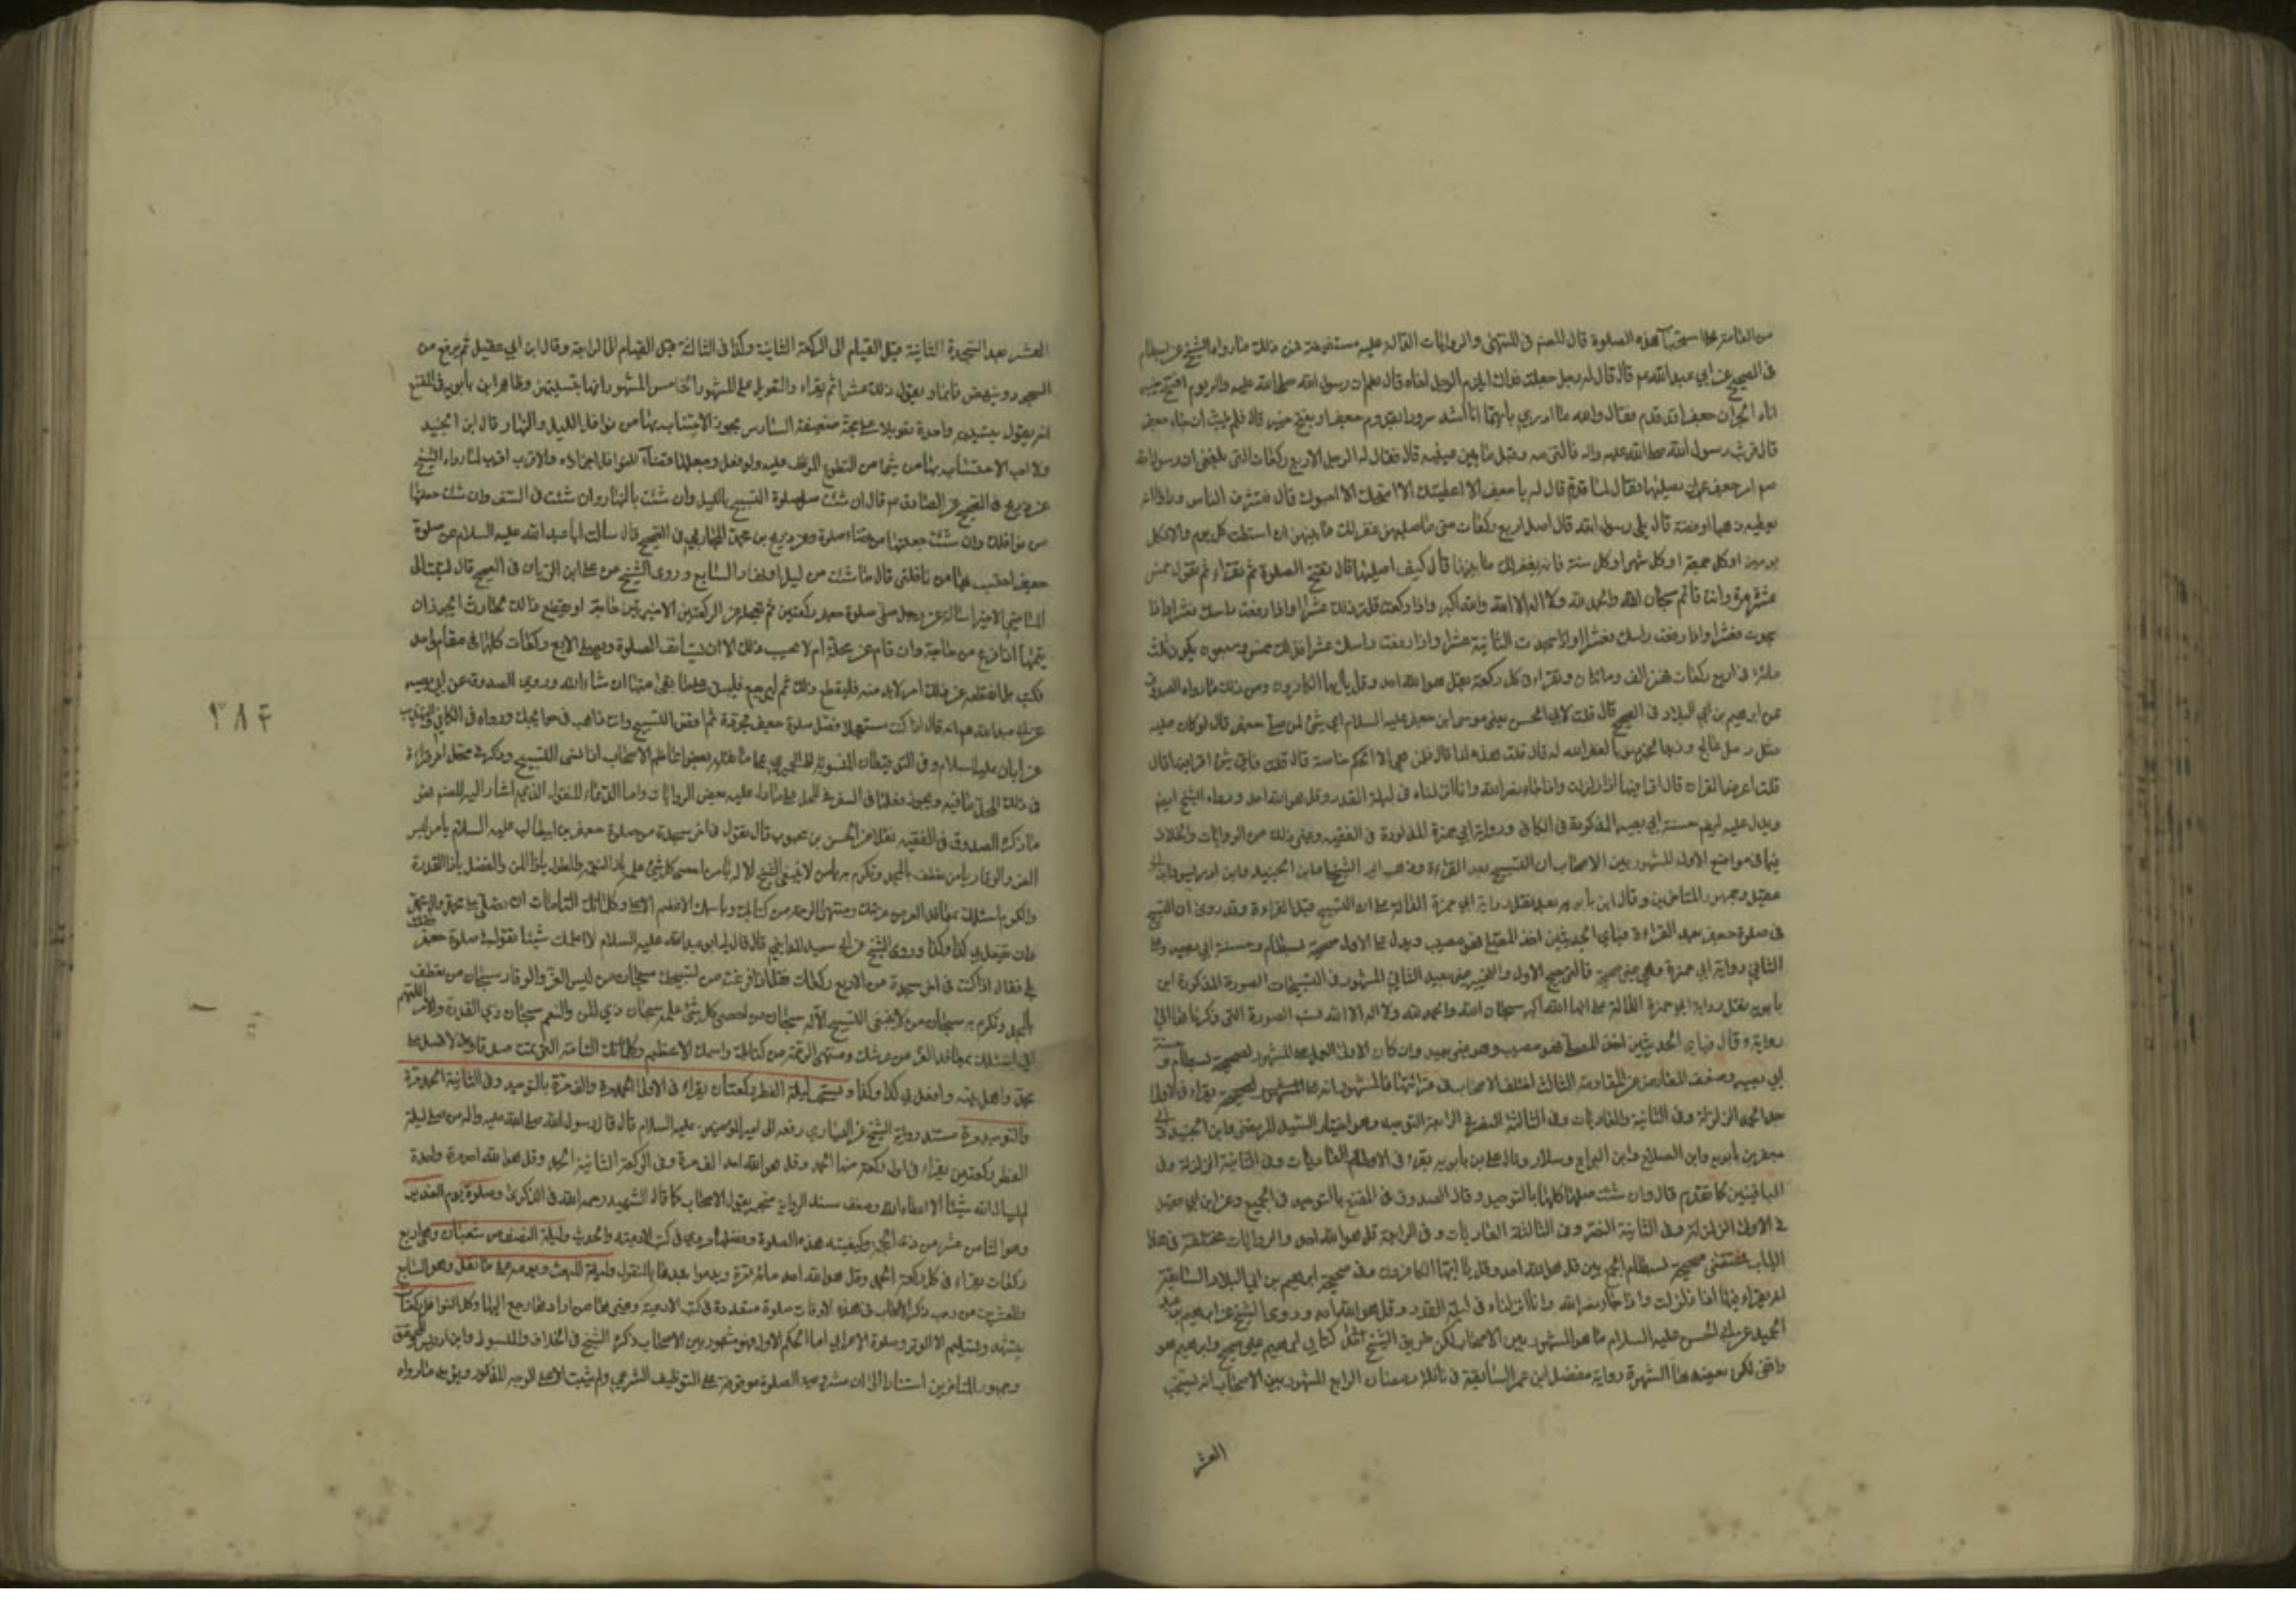 من العامة علا استحباب هذه الصلوة قال المصنف في المنتهى والروايات الدالة عليه مستفيضة فمن ذلك ما رواه الشيخ عن بسطام
في الصحيح عن ابي عبد الله عم قال قال له رجل جعلت فداك ايلتزم الرجل اخاه قال نعم ان رسول الله صلى الله عليه واله يوم افتتح خيبر
اتاه الخبر ان جعفرا قد قدم فقال والله ما ادري بايهما انا اشد سرورا بقدوم جعفر او بفتح خيبر قال فلم يلبث ان جاء جعفر
قال فوثب رسول الله صلى الله عليه واله فالتزمه وقبل ما بين عينيه قال فقال له الرجل الاربع ركعات التي بلغني ان رسول الله
صم امر جعفر ان يصليها فقال لما قدم قال له يا جعفر الا اعطيك الا امنحك الا احبوك قال فتشرف الناس وراوا انه
يعطيه ذهبا او فضة قال بلى رسول الله قال صل اربع ركعات متى ما صليتهن غفر لك ما بينهن ان استطعت كل يوم والا فكل
يومين او كل جمعة او كل شهر او كل سنة فانه يغفر لك ما بينهما قال كيف اصليها قال تفتتح الصلوة ثم تقراء ثم تقول خمس
عشرة مرة وانت قائم سبحان الله والحمد لله ولا اله الا الله والله اكبر واذا ركعت قلت ذلك عشرا واذا رفعت راسك فعشرا واذا
سجدت فعشرا واذا رفعت راسك فعشرا واذا سجدت الثانية عشرا واذا رفعت راسك عشرا فذلك خمس وسبعون يكون ثلث
مائة في اربع ركعات فهن الف ومائتان وتقراء في كل ركعة بقل هو الله احد وقل يا ايها الكافرون ومن ذلك ما رواه الصدوق
عن ابرهيم بن ابي البلاد في الصحيح قال قلت لابي الحسن يعني موسى ابن جعفر عليه السلام اي شئ لمن صلى صلوة جعفر قال لو كان عليه
مثل رمل عالج وزبد البحر ذنوبا لغفر الله له قال قلت هذه لنا قال فلمن هي الا لكم خاصة قال قلت فاي شئ اقراء فيها قال
قلت اعرض القران قال لا اقراء فيها اذا زلزلت واذا جاء نصر الله وانا انزلناه في ليلة القدر وقل هو الله احد ورواه الشيخ ايضا
ويدل عليه ايضا حسنة ابي بصير المذكورة في الكافي ورواية ابي حمزة المذكورة في الفقيه وغير ذلك من الروايات والخلاف
فيها في مواضع الاول المشهور بين الاصحاب ان التسبيح بعد القراءة وذهب اليه الشيخان وابن الجنيد وابن ادريس وابن ابي
عقيل وجمهور المتاخرين وقال ابن بابويه بعد نقل رواية ابي حمزة الدالة على ان التسبيح قبل القراءة وقد روي ان التسبيح
في صلوة جعفر بعد القراءة فباي الحديثين اخذ المصلي فهو مصيب ويدل على الاول صحيحة بسطام وحسنة ابي بصير وعلى
الثاني رواية ابي حمزة وهي غير صحيحة فالترجيح للاول والتخيير غير بعيد الثاني المشهور في التسبيحات الصورة المذكورة ابن
بابويه بنقل رواية ابي حمزة الدالة على انها الله اكبر سبحان الله والحمد لله ولا اله الا الله نسب الصورة التي ذكرناها الى
رواية وقال فباي الحديثين اخذ المصلي فهو مصيب وهو غير بعيد وان كان الاولى العمل على المشهور لصحيحة بسطام وحسنة
ابي بصير وضعف المعارض عن المقاومة الثالث اختلف الاصحاب في قرائتها فالمشهور انه يقراء في الاولى
بعد الحمد الزلزلة وفي الثانية والعاديات وفي الثالثة النصر وفي الرابعة التوحيد وهو اختيار السيد المرتضى وابن الجنيد وابي
جعفر بن بابويه وابي الصلاح وابن البراج وسلار وقال علي بن بابويه يقراء في الاولى العاديات وفي الثانية الزلزلة وفي
الباقيتين كما تقدم قال وان شئت صليتها كلها بالتوحيد وقال الصدوق في المقنع بالتوحيد في الجميع وعن ابن ابي عقيل
في الاولى الزلزلة وفي الثانية النصر وفي الثالثة العاديات وفي الرابعة قل هو الله احد والروايات مختلفة في هذا
الباب فمقتضى صحيحة بسطام الجمع بين قل هو الله احد وقل يا ايها الكافرون وفي صحيحة ابرهيم بن ابي البلاد السابقة
انه يقراء فيها اذا زلزلت واذا جاء نصر الله وانا انزلناه في ليلة القدر وقل هو الله احد وروى الشيخ عن ابرهيم بن عبد
الحميد عن ابي الحسن عليه السلام ما هو المشهور بين الاصحاب لكن طريق الشيخ الى كتاب ابرهيم غير صحيح وابرهيم هو
واقفي لكن يعضده هنا الشهرة رواية مفضل ابن عمر السابقة في نافلة رمضان الرابع المشهور بين الاصحاب انه يستحب
العشر
العشر بعد السجدة الثانية قبل القيام الى الركعة الثانية وكذا في الثالثة قبل القيام الى الرابعة وقال ابن ابي عقيل ثم يرفع من
السجود وينهض قائما ويقول ذلك عشرا ثم يقراء والتعويل على المشهور الخامس المشهور انها بتسليمتين وظاهر ابن بابويه في المقنع
انه يقول بتسليمة واحدة تعويلا على حجة ضعيفة السادس يجوز الاحتساب بها من نوافل الليل والنهار قال ابن الجنيد
ولا احب الاحتساب بها من شئ من التطوع الموظف عليه ولو فعل وجعلها قضاء للنوافل اجزاه والاقرب اقرب لما رواه الشيخ
عن ذريح في الصحيح عن الصادق عم قال ان شئت صل صلوة التسبيح بالليل وان شئت بالنهار وان شئت في السفر وان شئت جعلتها
من نوافلك وان شئت جعلتها من قضاء صلوة وعن ذريح بن محمد المحاربي في الصحيح قال سالت ابا عبد الله عليه السلام عن صلوة
جعفر احتسب بها من نافلتي قال ما شئت من ليل او نهار السابع وروى الشيخ عن علي ابن الريان في الصحيح قال كتبت الى
الماضي الاخير اساله عن رجل صلى صلوة جعفر ركعتين ثم تعجله عن الركعتين الاخيرتين حاجة او يقطع ذلك بحادث ايجوز ان
يتمها اذا فرغ من حاجته وان قام عن مجلسه ام لا يحتسب ذلك الا ان يستانف الصلوة ويصلي الاربع ركعات كلها في مقام واحد
فكتب بل ان قطعه عن ذلك امر لا بد منه فليقطع ذلك ثم ليرجع فليبن على ما بقي منها ان شاء الله وروى الصدوق عن ابي بصير
عن ابي عبد الله عم انه قال اذا كنت مستعجلا فصل صلوة جعفر مجردة ثم اقض التسبيح وانت ذاهب في حوائجك ورواه في الكافي والتهذيب
عن ابان
في ذلك
ما ذكره الصدوق في الفقيه نقلا عن الحسن بن محبوب قال تقول في اخر سجدة من صلوة جعفر بن ابيطالب عليه السلام يا من لبس
العز والوقار يا من تعطف بالمجد وتكرم به يا من لا ينبغي التسبيح الا له يا من احصى كل شئ علمه يا ذا النعمة والطول يا ذا المن والفضل يا ذا القدرة
والكرم اسئلك بمعاقد العز من عرشك ومنتهى الرحمة من كتابك وباسمك الاعظم الاعلى وكلماتك التامات ان تصلي على محمد وال محمد
وان تفعل بي كذا وكذا وروى الشيخ عن ابي سعيد المدايني قال قال لي ابو عبد الله عليه السلام الا اعلمك شيئا تقوله في صلوة جعفر
فقلت بلى فقال اذا كنت في اخر سجدة من الاربع ركعات فقل اذا فرغت من تسبيحك سبحان من لبس العز والوقار سبحان من تعطف
بالمجد وتكرم به سبحان من لا ينبغي التسبيح الا له سبحان من احصى كل شئ علمه سبحان ذي المن والنعم سبحان ذي القدرة والامر اللهم
اني اسئلك بمعاقد العز من عرشك ومنتهى الرحمة من كتابك واسمك الاعظم وكلماتك التامة التي تمت صدقا وعدلا صل على
محمد واهل بيته وافعل بي كذا وكذا ويستحب ليلة الفطر ركعتان يقراء في الاولى الحمد مرة والف مرة بالتوحيد وفي الثانية الحمد مرة
والتوحيد مرة مستند رواية الشيخ عن السياري رفعه الى امير المؤمنين عليه السلام قال قال رسول الله صلى الله عليه واله من صلى ليلة
الفطر ركعتين يقراء في اول ركعة منها الحمد وقل هو الله احد الف مرة وفي الركعة الثانية الحمد وقل هو الله احد مرة واحدة
لم يسال الله شيئا الا اعطاه الله وضعف سند الرواية منجبر بقبول الاصحاب كما قاله الشهيد رحمه الله في الذكرى وصلوة يوم الغدير
وهو الثامن عشر من ذي الحجة وكيفيته هذه الصلوة وفضلها مروي في كتب الادعية والحديث وليلة النصف من شعبان وهي اربع
ركعات يقراء في كل ركعة الحمد وقل هو الله احد مائة مرة ويدعوا بعدها بالمنقول وليلة المبعث ويومه على ما نقل وهو السابع
والعشرين من رجب ذكر الاصحاب في هذه الاوقات صلوة متعددة في كتب الادعية وغيرها من ارادها رجع اليها وكل النوافل ركعتان
بتشهد وتسليم الا الوتر وصلوة الاعرابي اما الحكم الاول فهو مشهور بين الاصحاب ذكره الشيخ في الخلاف والمبسوط وابن ادريس والمحقق
وجمهور المتاخرين استنادا الى ان مشروعية الصلوة موقوفة على التوظيف الشرعي ولم يثبت الا على الوجه المذكور ويؤيده ما رواه
٢٨٣